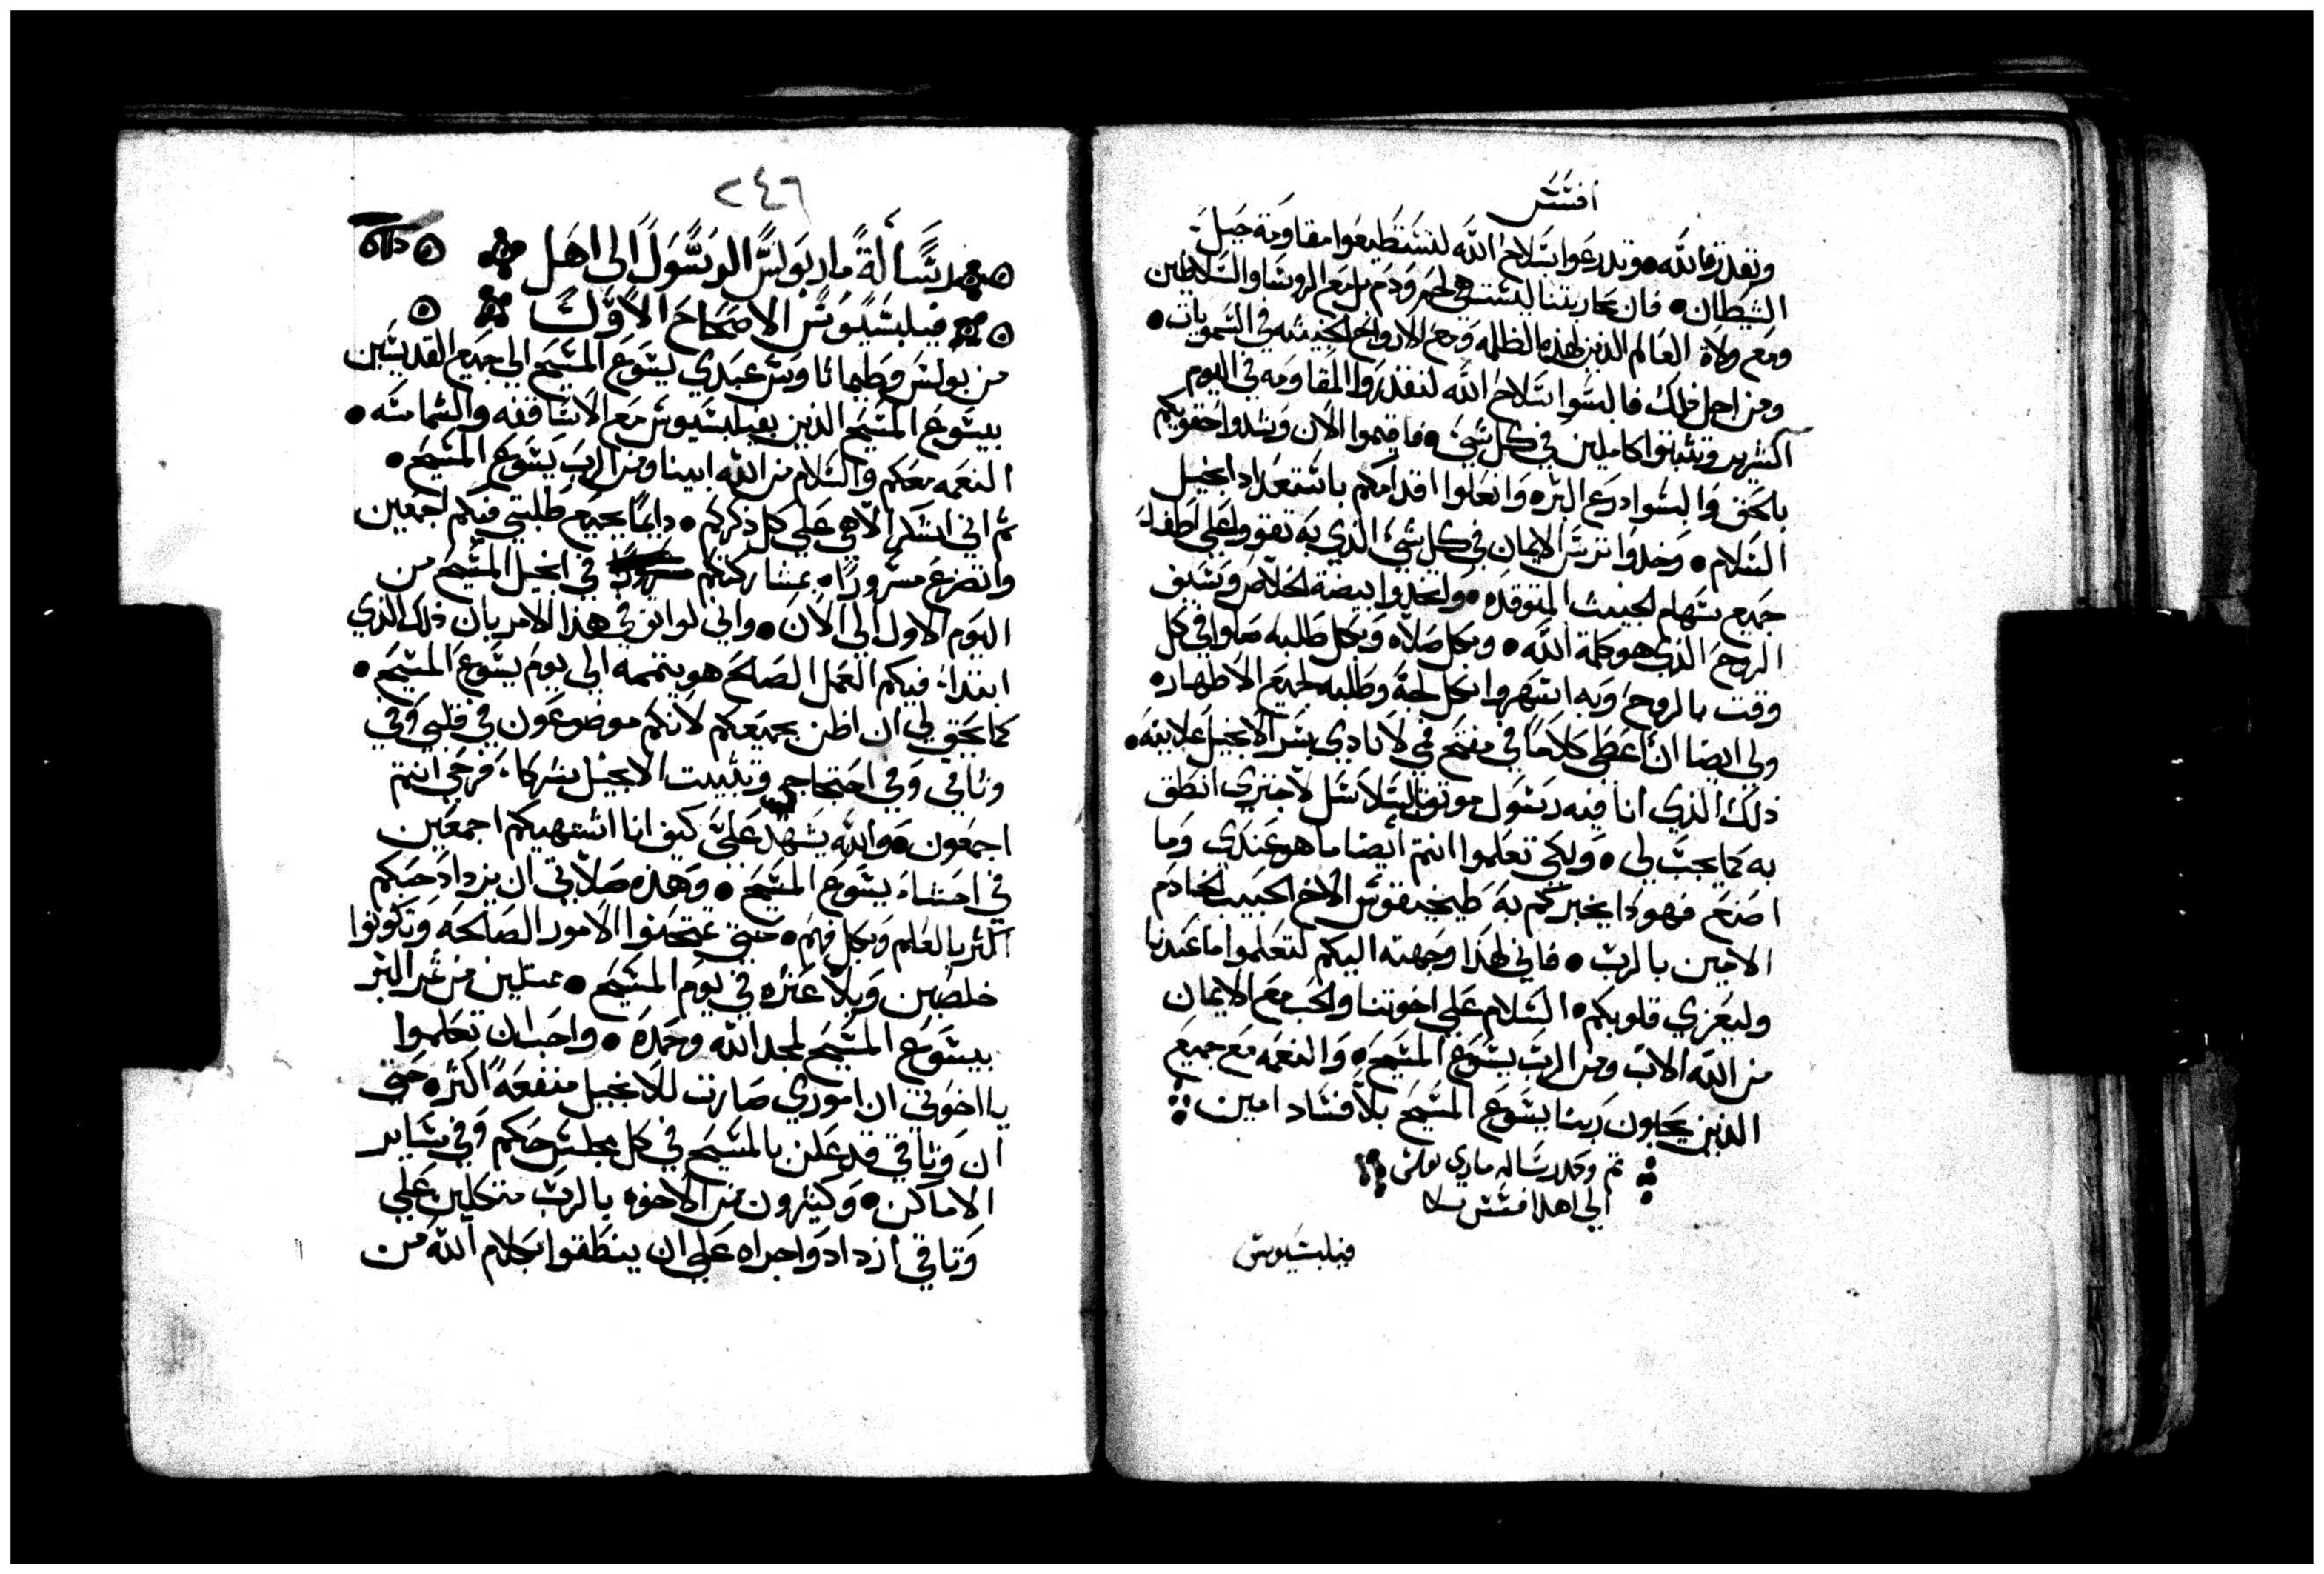 افسس
وبقدرة الله • وتدرعوا بسلاح الله لتستطيعوا مقاومة حيل
الشيطان • فان محاربتنا ليست هي لحم ودم بل مع الروسا والسلاطين
ومع ولاة العالم الذين لهذه الظلمه ومع الارواح الخبيثه في السمويات •
ومن اجل ذلك فالبسوا سلاح الله لتقدروا المقاومه في اليوم
الشرير وتثبتوا كاملين في كل شي • فاقيموا الان وشدوا حقويكم
بالحق والبسوا درع البر • وانعلوا اقدامكم باستعداد انجيل
السلام • وخدوا ترس الايمان في كل شي الذي به تقووا على اطفاء
جميع سهام الخبيث المتوقده • واتخدوا بيضة الخلاص وسيف
الروح الذي هو كلمة الله • وبكل صلاه وبكل طلبه صلوا في كل
وقت بالروح وبه اسهروا بكل لجة وطلبه لجميع الاطهار •
ولي ايضا ان اعطى كلاما في مفتح فمي لانادي بسر الانجيل علانيه •
ذلك الذي انا فيه رسول موثق بالسلاسل لاجتري انطق
به كما يجب لي • ولكي تعلموا انتم ايضا ما هو عندي وما
اصنع فهودا يخبركم به طيخيقوس الاخ الحبيب الخادم
الامين بالرب • فاني لهذا وجهته اليكم لتعلموا ما عندنا
وليعزي قلوبكم • السلام على اخوتنا والحب مع الايمان
من الله الاب ومن الرب يسوع المسيح • والنعمه مع جميع
الذين يحبون ربنا يسوع المسيح بلا فساد امين
تم وكمل رساله ماري بولس
الي اهل افسس بسلام
فيلبسيوس
٢٤٦
رسالة مار بولس الرسول الى اهل
فيلبسيوس الاصحاح الاول
من بولس وطيماثاوس عبدي يسوع المسيح الي جميع القديسين
بيسوع المسيح الذين بفيلبسيوس مع الاساقفه والشمامسه •
النعمه معكم والسلام من الله ابينا ومن الرب يسوع المسيح •
ثم اني اشكر الاهي على كل ذكركم • دايما بجميع طلبتي فيكم اجمعين
واتضرع مسرورا • بمشاركتكم في انجيل المسيح من
اليوم الاول الي الان • واني لواثق في هذا الامر بان ذلك الذي
ابتدا فيكم العمل الصالح هو يتممه الي يوم يسوع المسيح •
كما يحق لي ان اظن بجميعكم لانكم موضوعون في قلبي وفي
وثاقي وفي احتجاجي وتثبيت الانجيل شركاء فرحي انتم
اجمعون • والله يشهد علي كيف انا اشتهيكم اجمعين
في احشاء يسوع المسيح • وهذه صلاتي ان يزداد حبكم
اكثر بالعلم وبكل فهم • حتي تمتحنوا الامور الصالحه وتكونوا
خلصين وبلا عثره في يوم المسيح • ممتليين من ثمر البر
بيسوع المسيح لمجد الله وحمده • واحب ان تعلموا
يا اخوتي ان اموري صارت للانجيل منفعة اكثر • حتي
ان وثاقي قد علن بالمسيح في كل مجلس حكم وفي ساير
الاماكن • وكثيرون من الاخوه بالرب متكلين علي
وثاقي ازدادوا جراه علي ان ينطقوا بكلام الله من